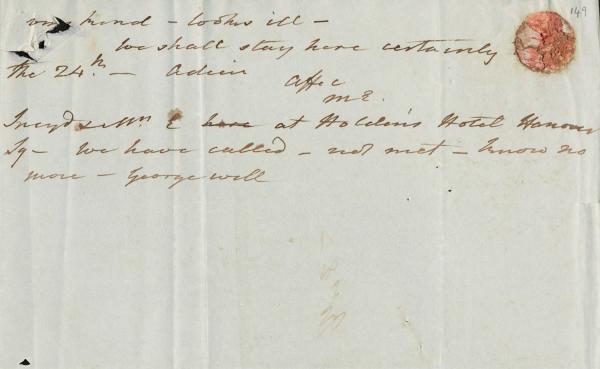 149
kind - looks ill -
We shall stay here certainly
the 24th - Adieu
Affec
M E.
& Mrs E here at Holden's Hotel Hanover
Sq - We have called - not met - know no
more - George well